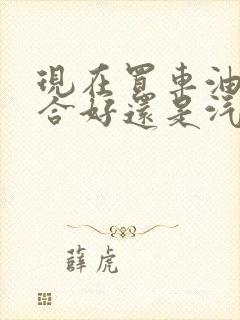 現在買車油
合好還是汽
薛虎